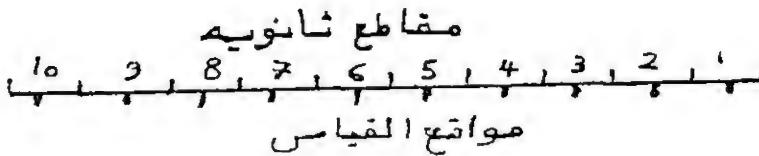 مقاطع ثانويه
10 9 8 7 6 5 4 3 2 1
مواقع القياس